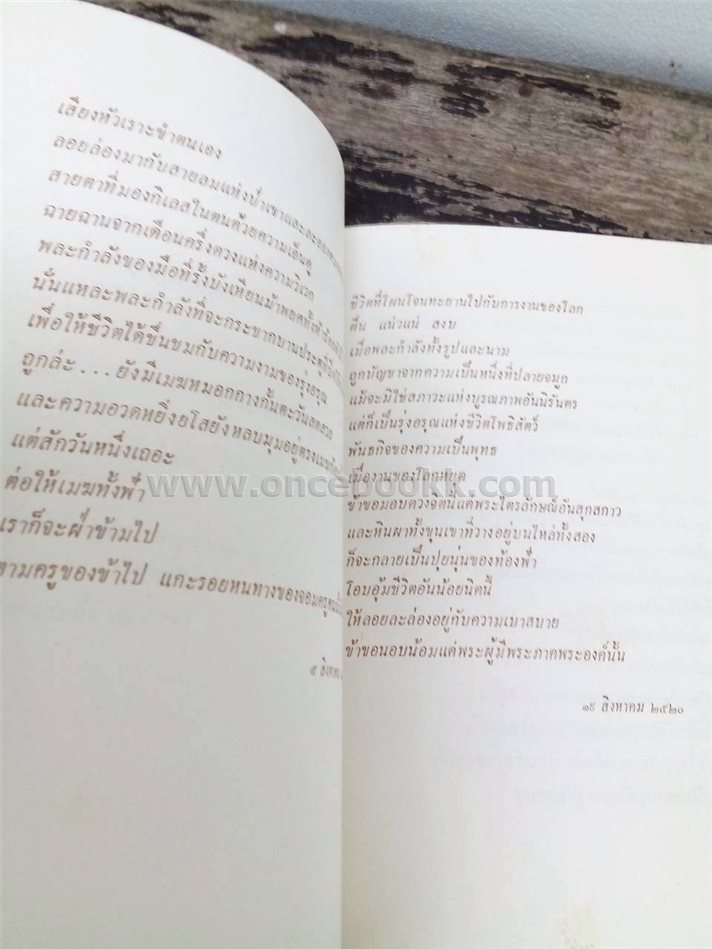 เสียงหัวเราะขำตนเอง
ลอยล่องมากับสายลมแห่งป่าเขาและละออง
สายตาที่มองกิเลสในตนด้วยความเอ็นดู
ฉายฉานจากเดือนครึ่งดวงแห่งความวิเวก
พละกำลังของมือที่รั้งบังเหียนม้าพยศทั้งห้า
นั่นแหละพละกำลังที่จะกระชากบานประตู
เพื่อให้ชีวิตได้ชื่นชมกับความงามของรุ่งอรุณ
ถูกล่ะ... ยังมีเมฆหมอกกางกั้นตะวัน
และความอวดหยิ่งยโสยังหลบมุมอยู่ตรง
แต่สักวันหนึ่งเถอะ
ต่อให้เมฆทั้งฟ้า
เราก็จะฝ่าข้ามไป
ตามครูของข้าไป แกะรอยหนทางของจอมครู
๕ สิงหาคม
ชีวิตที่โผนโจนทะยานไปกับการงานของโลก
ตื่น แน่วแน่ สงบ
เมื่อพละกำลังทั้งรูปและนาม
ถูกบัญชาจากความเป็นหนึ่งที่ปลายจมูก
แม้จะมิใช่สภาวะแห่งบูรณภาพอันนิรันดร
แต่ก็เป็นรุ่งอรุณแห่งชีวิตโพธิสัตว์
พันธกิจของความเป็นพุทธ
เมื่องานของโลกหยุด
ข้าขอมอบดวงจิตนี้แด่พระไตรลักษณ์อันสุกสกาว
และหินผาทั้งขุนเขาที่วางอยู่บนไหล่ทั้งสอง
ก็จะกลายเป็นปุยนุ่นของท้องฟ้า
โอบอุ้มชีวิตอันน้อยนิดนี้
ให้ลอยละล่องอยู่กับความเบาสบาย
ข้าขอนอบน้อมแด่พระผู้มีพระภาคพระองค์นั้น
๑๙ สิงหาคม ๒๕๒๐
www.oncebookk.com